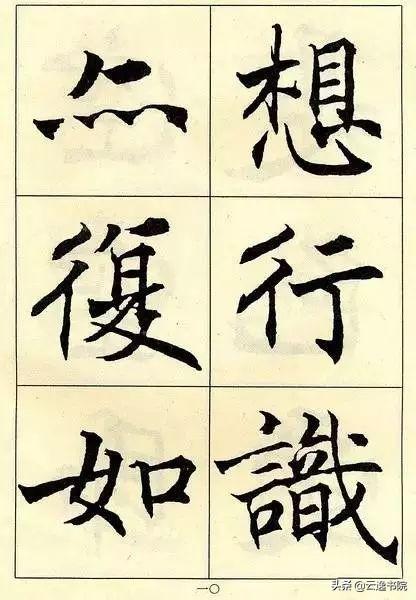 想行識
亦復如
一〇
头条 @云逸书院